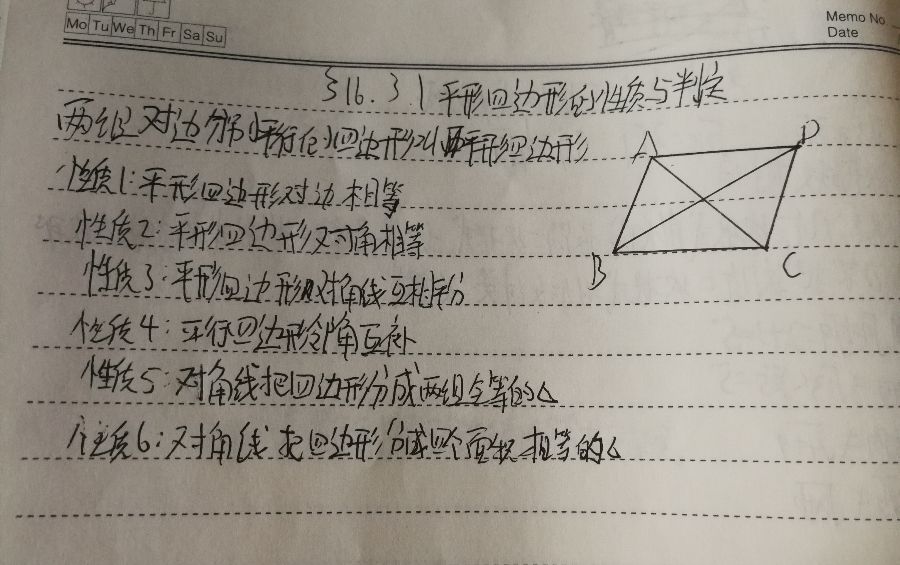 Mo Tu We Th Fr Sa Su
Memo No
Date
§16.3.1 平形四边形的性质与判定
两组对边分别平行的四边形叫平形四边形
性质1:平形四边形对边相等
性质2:平形四边形对角相等
性质3:平形四边形对角线互相平分
性质4:平行四边形邻角互补
性质5:对角线把四边形分成两组全等的△
性质6:对角线把四边形分成四个面积相等的△
A D
B C